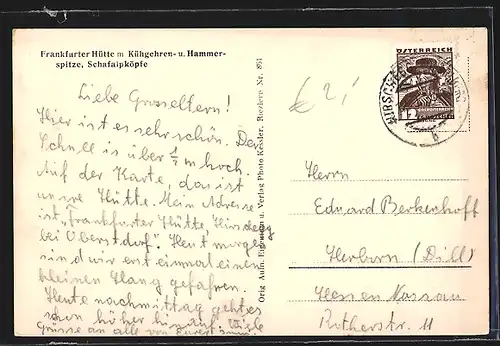 Frankfurter Hütte m Kühgehren- u. Hammer-
spitze, Schafalpköpfe
Liebe Grosseltern!
Hier ist es sehr schön. Der
Schnee is über 1/2 m hoch.
Auf der Karte, das ist
unsre Hütte. Mein Adresse
ist, Frankfurter Hütte, Hirschegg
bei Oberstdorf. Heut morgen
sind wir erst einmal einen
kleinen Hang gefahren.
Heute nachmittag geht's
schon höher hinauf. Viele
Grüsse an alle von Eurer
Orig. Aufn. Eigentum u. Verlag Photo Kessler, Riezlern Nr. 894
€ 2,-
ÖSTERREICH
12
HIRSCHEGG
b
Herrn
Eduard Berkenhoff
Herborn (Dill)
Hessen Nassau
Rotherstr. 11